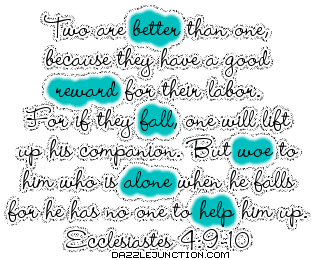 Two are better than one,
because they have a good
reward for their labor.
For if they fall, one will lift
up his companion. But woe to
him who is alone when he falls
for he has no one to help him up.
Ecclesiastes 4:9-10
DAZZLEJUNCTION.COM